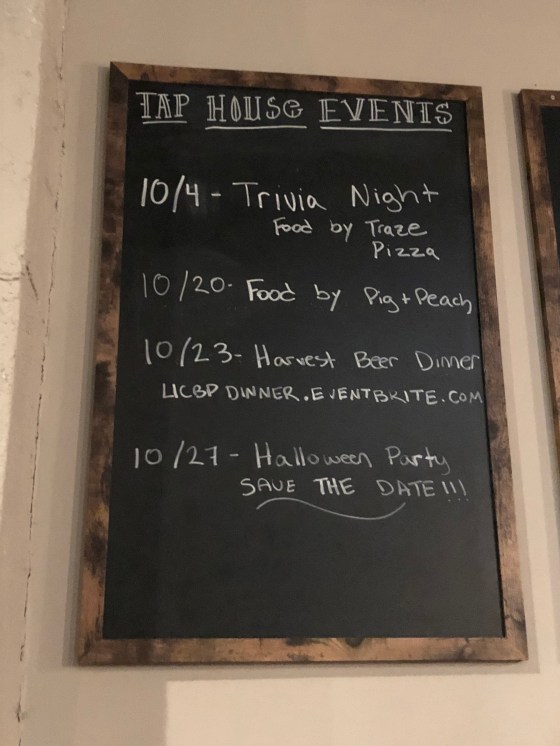 TAP HOUSE EVENTS
10/4 - Trivia Night
Food by Traze
Pizza
10/20- Food by Pig + Peach
10/23- Harvest Beer Dinner
UCBP DINNER.EVENTBRITE.COM
10/27 - Halloween Party
SAVE THE DATE!!!